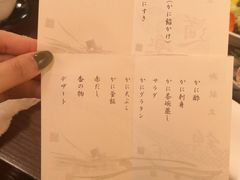 (かに餡かけ)
にすき
かに酢
かに刺身
かに茶碗蒸し
サラダ
かにグラタン
かに天ぷら
かに釜飯
赤だし
香の物
デザート